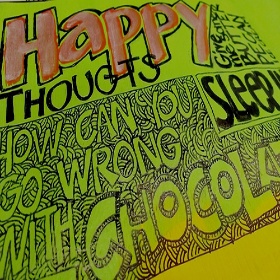 Happy
THOUGTS
SLEEP
HOW CAN YOU
GO WRONG
WITH CHOCOLA